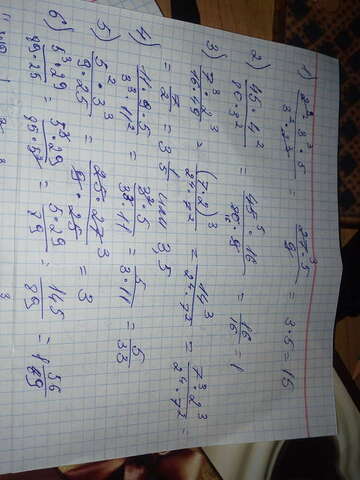 1) (2²·3³·5)/(3²·2²) = 27·5/9 = 3·5 = 15
2) 45·4²/80·3² = 45·16/80·9 = 16/16 = 1
3) 7³·2³/16·49 = (7·2)³/2⁴·7² = 14³/2⁴·7² = 7³·2³/2⁴·7² =
= 7/2 = 3 1/5 или 3,5
4) 11·9·5/3³·11² = 3²·5/3³·11 = 5/3·11 = 5/33
5) 5²·3³/9·25 = 25·27/9·25 = 3
6) 5³·29/89·25 = 5³·29/89·5² = 5·29/89 = 145/89 = 1 56/89